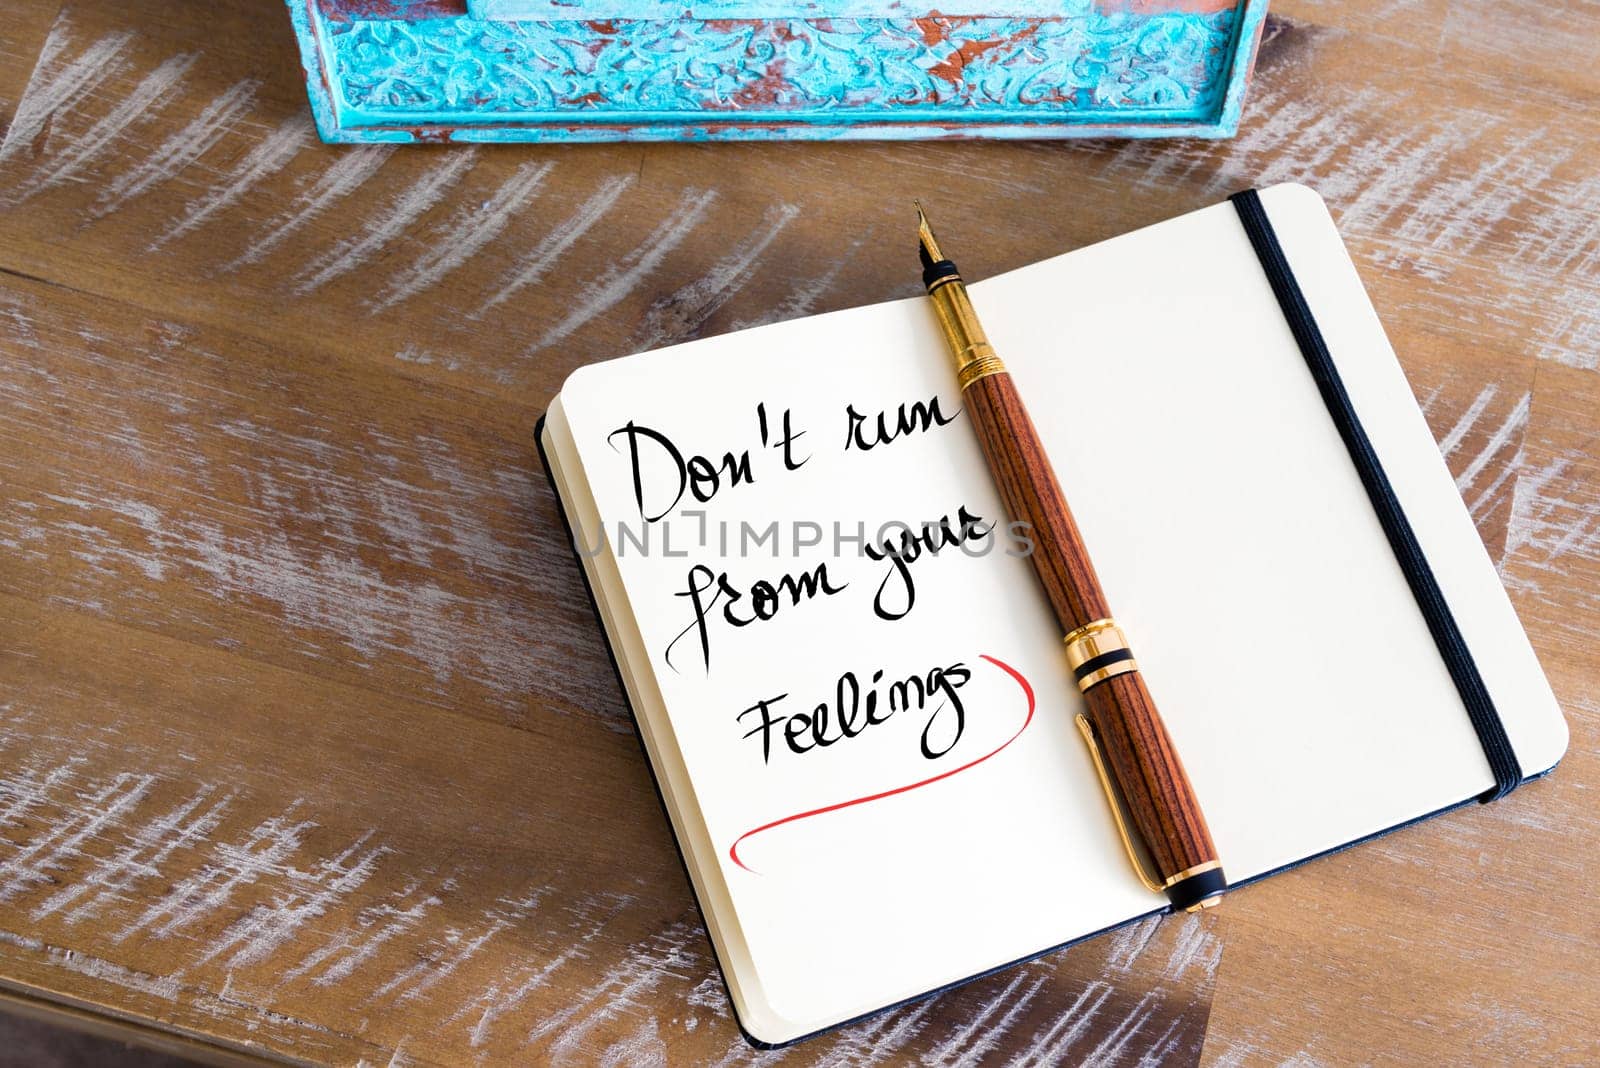 Don't run
from your
Feelings
UNLIMPHOTOS